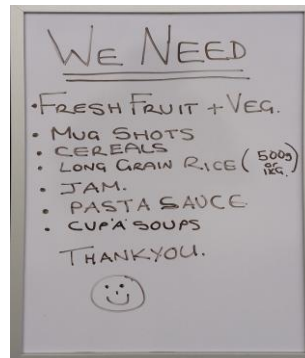 WE NEED
• FRESH FRUIT + VEG.
• MUG SHOTS
• CEREALS
• LONG GRAIN RICE (500g or 1KG.)
• JAM.
• PASTA SAUCE
• CUP'A' SOUPS
THANKYOU.